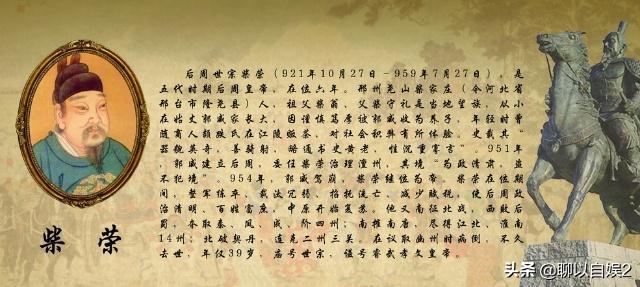 后周世宗柴荣（921年10月27日－959年7月27日），是
五代时期后周皇帝，在位六年。邢州尧山柴家庄（今河北省
邢台市隆尧县）人，祖父柴翁、父柴守礼是当地望族，从小
在姑丈郭威家长大，因谨慎笃厚被郭威收为养子，年轻时曾
随商人颉跌氏在江陵贩茶，对社会积弊有所体验。史载其“
器貌英奇，善骑射，略通书史黄老，性沉重寡言”。951年
，郭威建立后周，委任柴荣治理澶州，其境“为政清肃，盗
不犯境”。954年，郭威驾崩，柴荣继位为帝。柴荣在位期
间，整军练卒、裁汰冗弱、招抚流亡、减少赋税，使后周政
治清明、百姓富庶，中原开始复苏。他又南征北战，西败后
蜀，夺取秦、凤、成、阶四州；南摧南唐，尽得江北、淮南
14州；北破契丹，连克二州三关。在议取幽州时病倒，不久
去世，年仅39岁，庙号世宗，谥号睿武孝文皇帝。
柴荣
头条 @聊以自娱2